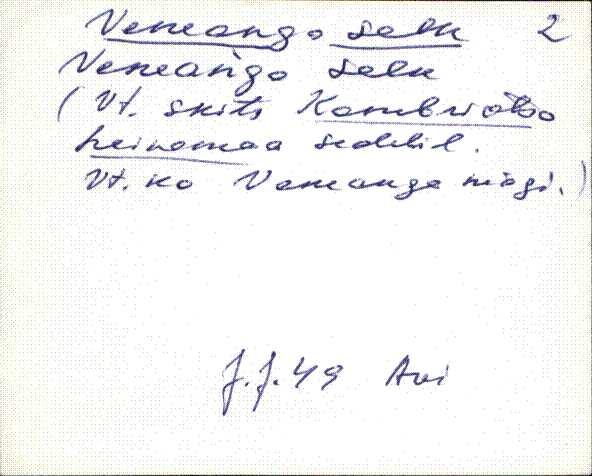 Veneango selk 2
Veneango selk
(Vt. skits Kombriotso
heinamaa sedelil.
Vt. ka Veneango mägi.)
J.J. 49 Avi